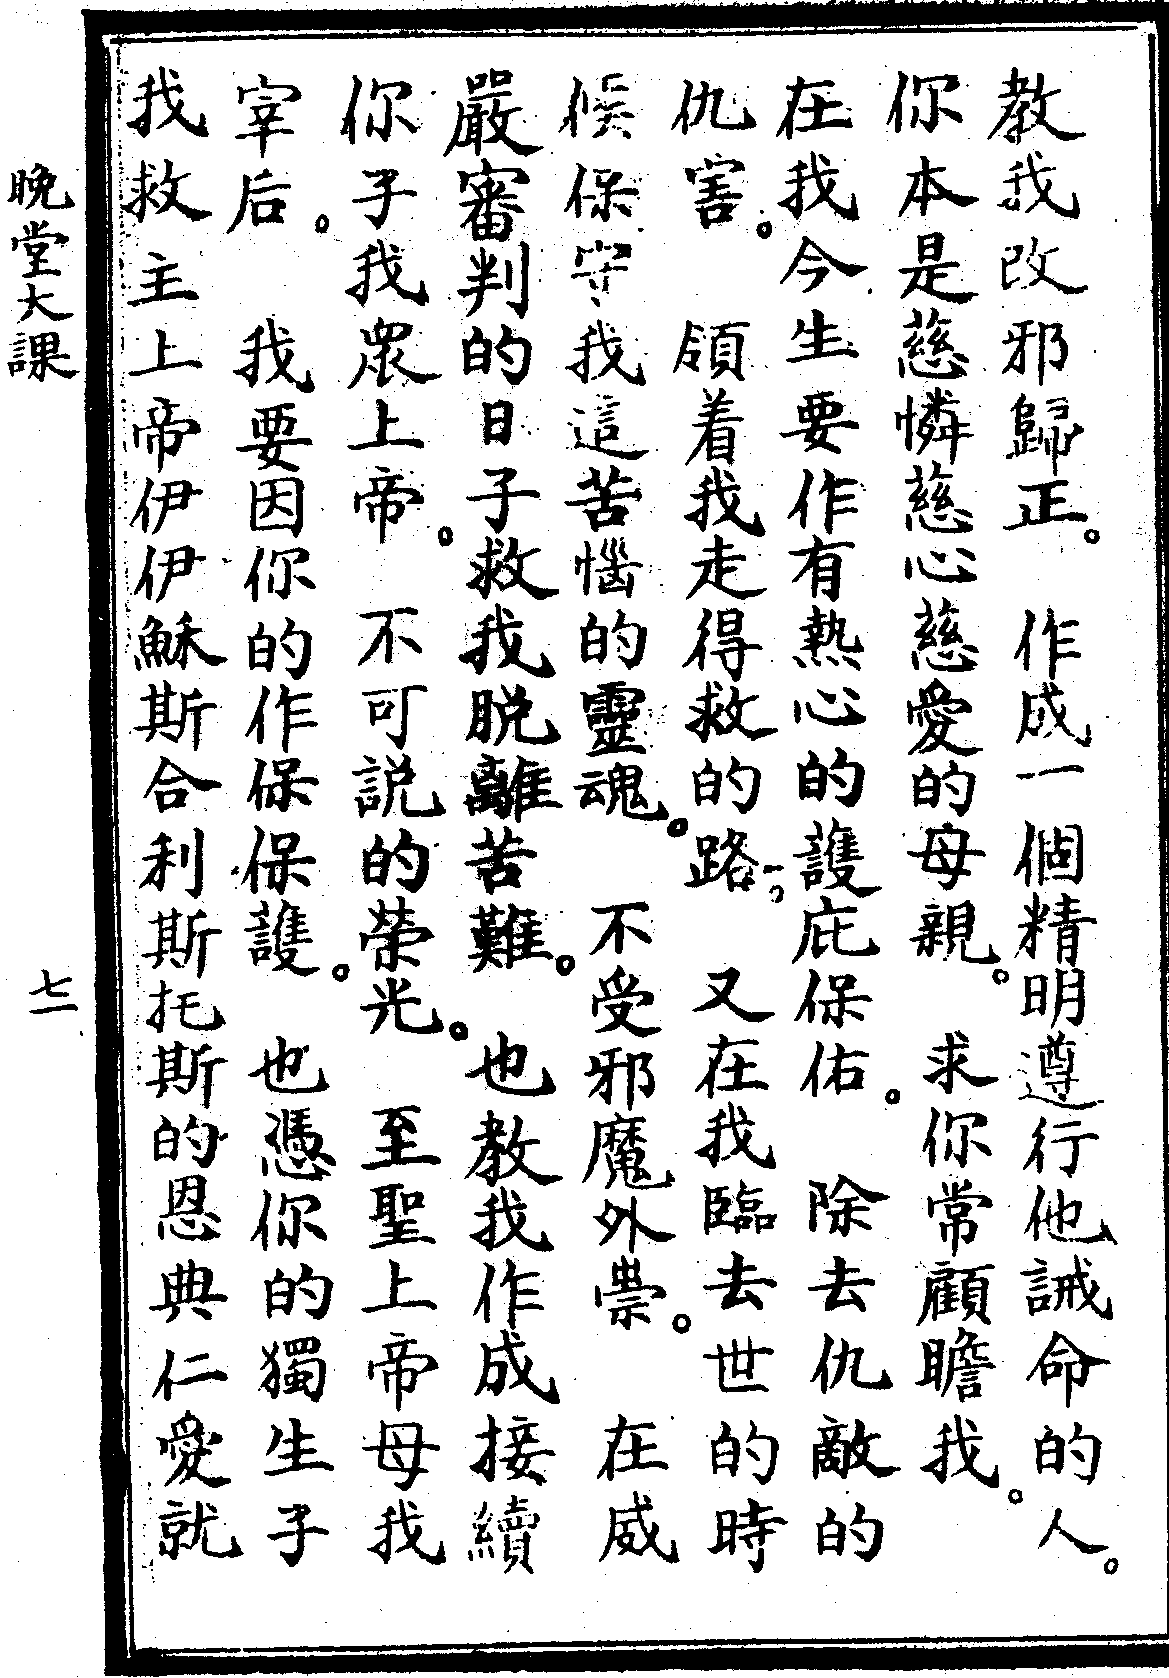 教我改邪歸正。作成一個精明遵行他誡命的人。
你本是慈憐慈心慈愛的母親。求你常顧瞻我。
在我今生要作有熱心的護庇保佑。除去仇敵的
仇害。領着我走得救的路。又在我臨去世的時
候保守我這苦惱的靈魂。不受邪魔外祟。在威
嚴審判的日子救我脱離苦難。也教我作成接續
你子我眾上帝。不可説的榮光。至聖上帝母我
宰后。我要因你的作保保護。也憑你的獨生子
我救主上帝伊伊穌斯合利斯托斯的恩典仁愛就
晚堂大課
七二